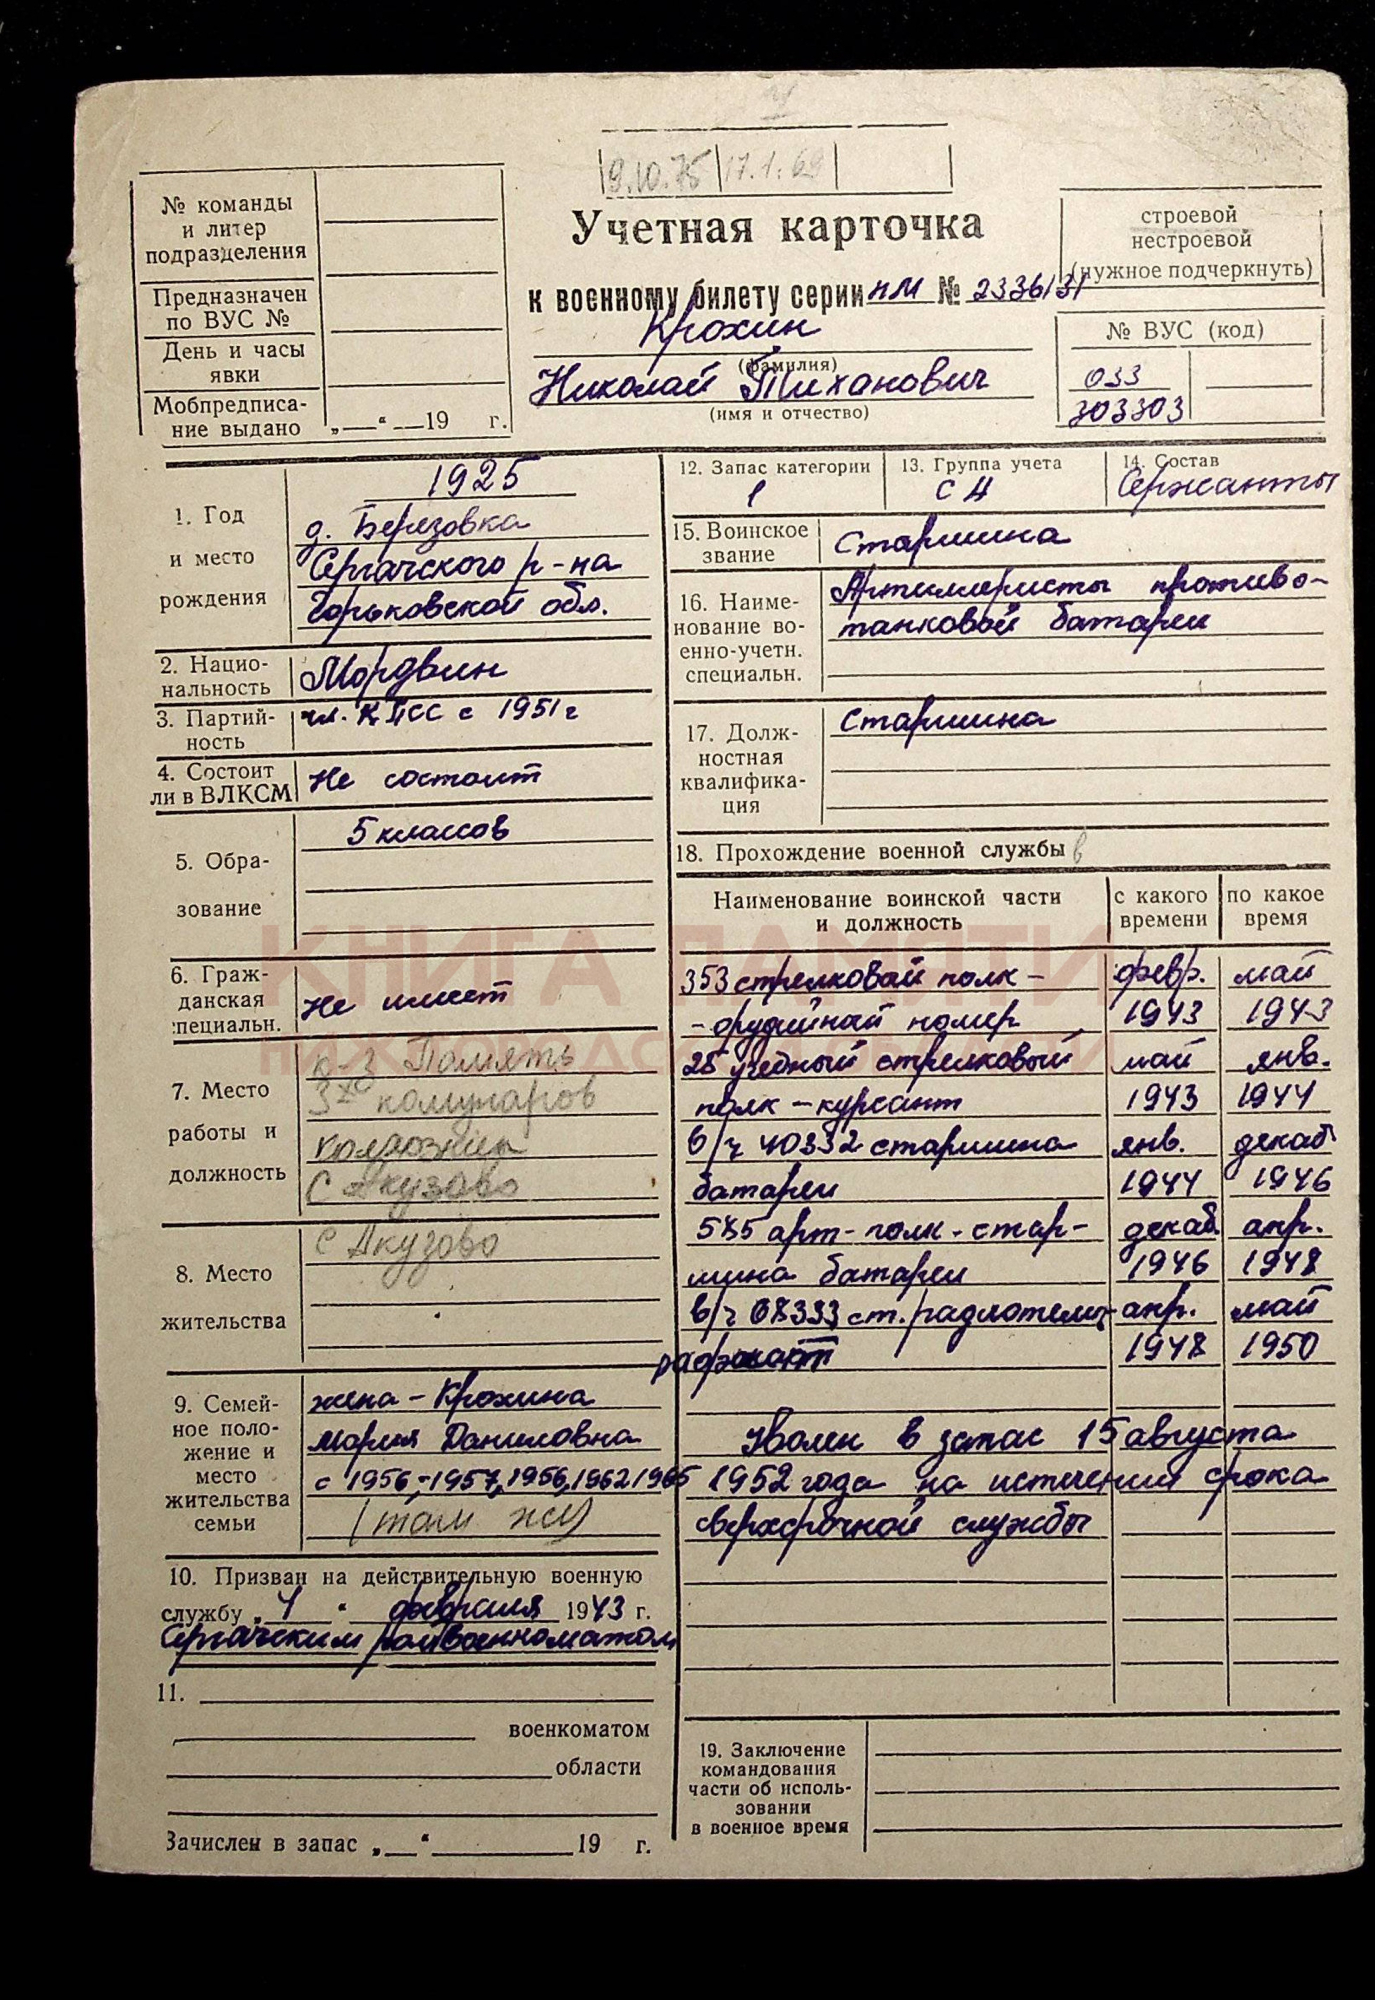 9.10.75 17.1.69
№ команды
и литер
подразделения
Предназначен
по ВУС №
День и часы
явки
Мобпредписа-
ние выдано „ “ 19 г.
Учетная карточка
к военному билету серии НМ № 2336131
Крохин
(фамилия)
Николай Тиханович
(имя и отчество)
строевой
нестроевой
(нужное подчеркнуть)
№ ВУС (код)
033
303303
1. Год
и место
рождения
1925
д. Березовка
Сергачского р-на
Горьковской обл.
2. Нацио-
нальность
Мордвин
3. Партий-
ность
чл. КПСС с 1951 г
4. Состоит
ли в ВЛКСМ
Не состоит
5. Обра-
зование
5 классов
6. Граж-
данская
специальн.
Не имеет
7. Место
работы и
должность
к-з Память
3х комунаров
колхозник
С Акузово
8. Место
жительства
с Акузово
9. Семей-
ное поло-
жение и
место
жительства
семьи
жена - Крохина
Мария Даниловна
с 1956, 1957, 1956, 1962 1965
(там же)
10. Призван на действительную военную
службу „4“ февраля 1943 г.
Сергачским райвоенкоматом
11.
военкоматом
области
Зачислен в запас „ “ 19 г.
12. Запас категории
1
13. Группа учета
СА
14. Состав
Сержанты
15. Воинское
звание
Старшина
16. Наиме-
нование во-
енно-учетн.
специальн.
Артиллеристы противо-
танковой батареи
17. Долж-
ностная
квалифика-
ция
Старшина
18. Прохождение военной службы
Наименование воинской части
и должность
с какого
времени
по какое
время
353 стрелковый полк - февр. май
- орудийный номер 1943 1943
25 учебный стрелковый май янв.
полк - курсант 1943 1944
в/ч 40332 старшина янв. декаб
батареи 1944 1946
575 арт-полк - стар- декаб. апр.
шина батареи 1946 1948
в/ч 08333 ст. радиотеле- апр. май
1948 1950
Уволен в запас 15 августа
1952 года по истечении срока
сверхсрочной службы
19. Заключение
командования
части об исполь-
зовании
в военное время
КНИГА ПАМЯТИ
НИЖЕГОРОДСКОЙ ОБЛАСТИ